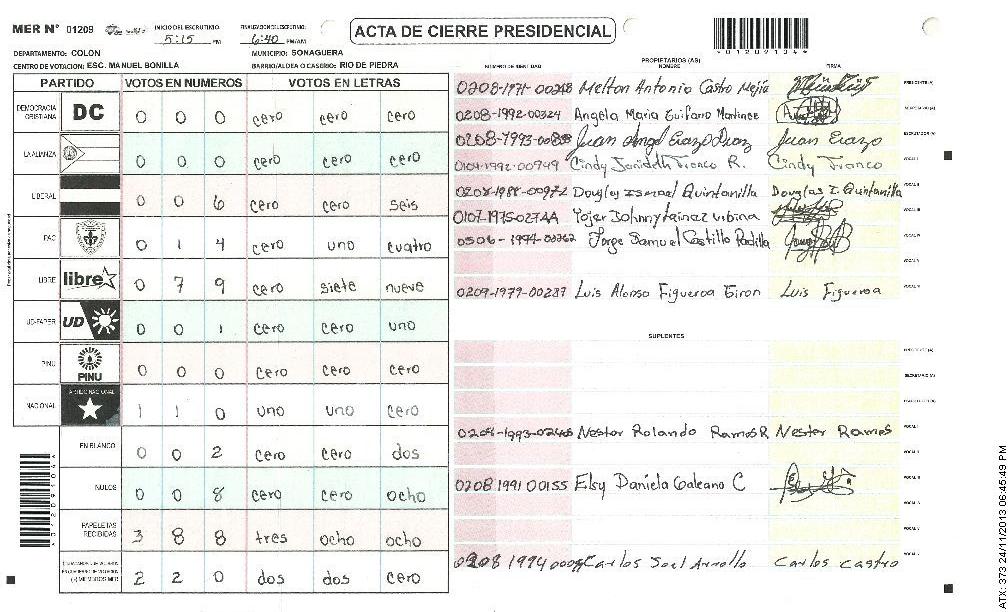 MER Nº 01209 INICIO DEL ESCRUTINIO: 5:15 PM FINALIZACION ESCRUTINIO: 6:40 PM/AM
ACTA DE CIERRE PRESIDENCIAL
4012091044
DEPARTAMENTO: COLON MUNICIPIO: SONAGUERA
CENTRO DE VOTACION: ESC. MANUEL BONILLA BARRIO/ALDEA O CASERIO: RIO DE PIEDRA
PARTIDO VOTOS EN NUMEROS VOTOS EN LETRAS
DEMOCRACIA CRISTIANA DC 0 0 0 cero cero cero
LA ALIANZA 0 0 0 cero cero cero
LIBERAL 0 0 6 cero cero seis
FAC 0 1 4 cero uno cuatro
LIBRE libre 0 7 9 cero siete nueve
UD-FAPER UD 0 0 1 cero cero uno
PINU PINU 0 0 0 cero cero cero
NACIONAL 1 1 0 uno uno cero
EN BLANCO 0 0 2 cero cero dos
NULOS 0 0 8 cero cero ocho
PAPELETAS RECIBIDAS 3 8 8 tres ocho ocho
(+) MIEMBROS MER 2 2 0 dos dos cero
PROPIETARIOS (AS)
NUMERO DE IDENTIDAD NOMBRE FIRMA
0208-1971-00248 Melton Antonio Castro Mejía PRESIDENTE (A)
0208-1992-00324 Angela Maria Guifarro Martinez SECRETARIO (A)
Juan Angel Erazo Diaz Juan Erazo ESCRUTADOR (A)
0104-1992-00749 Cindy Janideth Franco R. Cindy Franco VOCAL I
0208-1988-00972 Douglas Ismael Quintanilla Douglas I. Quintanilla VOCAL II
0107-1975-02744 Yojer Johnny VOCAL III
0506-1994-00262 Jorge Samuel Castillo Padilla VOCAL IV
VOCAL V
0209-1979-00287 Luis Alonso Figueroa Giron Luis Figueroa VOCAL VI
SUPLENTES
PRESIDENTE (A)
SECRETARIO (A)
ESCRUTADOR (A)
Nestor Rolando Ramos R Nestor Ramos VOCAL I
VOCAL II
0208 1991 00155 Elsy Daniela Galeano C VOCAL III
VOCAL IV
VOCAL V
0208 1994 Carlos Carlos Castro VOCAL VI
ATX: 373 24/11/2013 06:45:49 PM